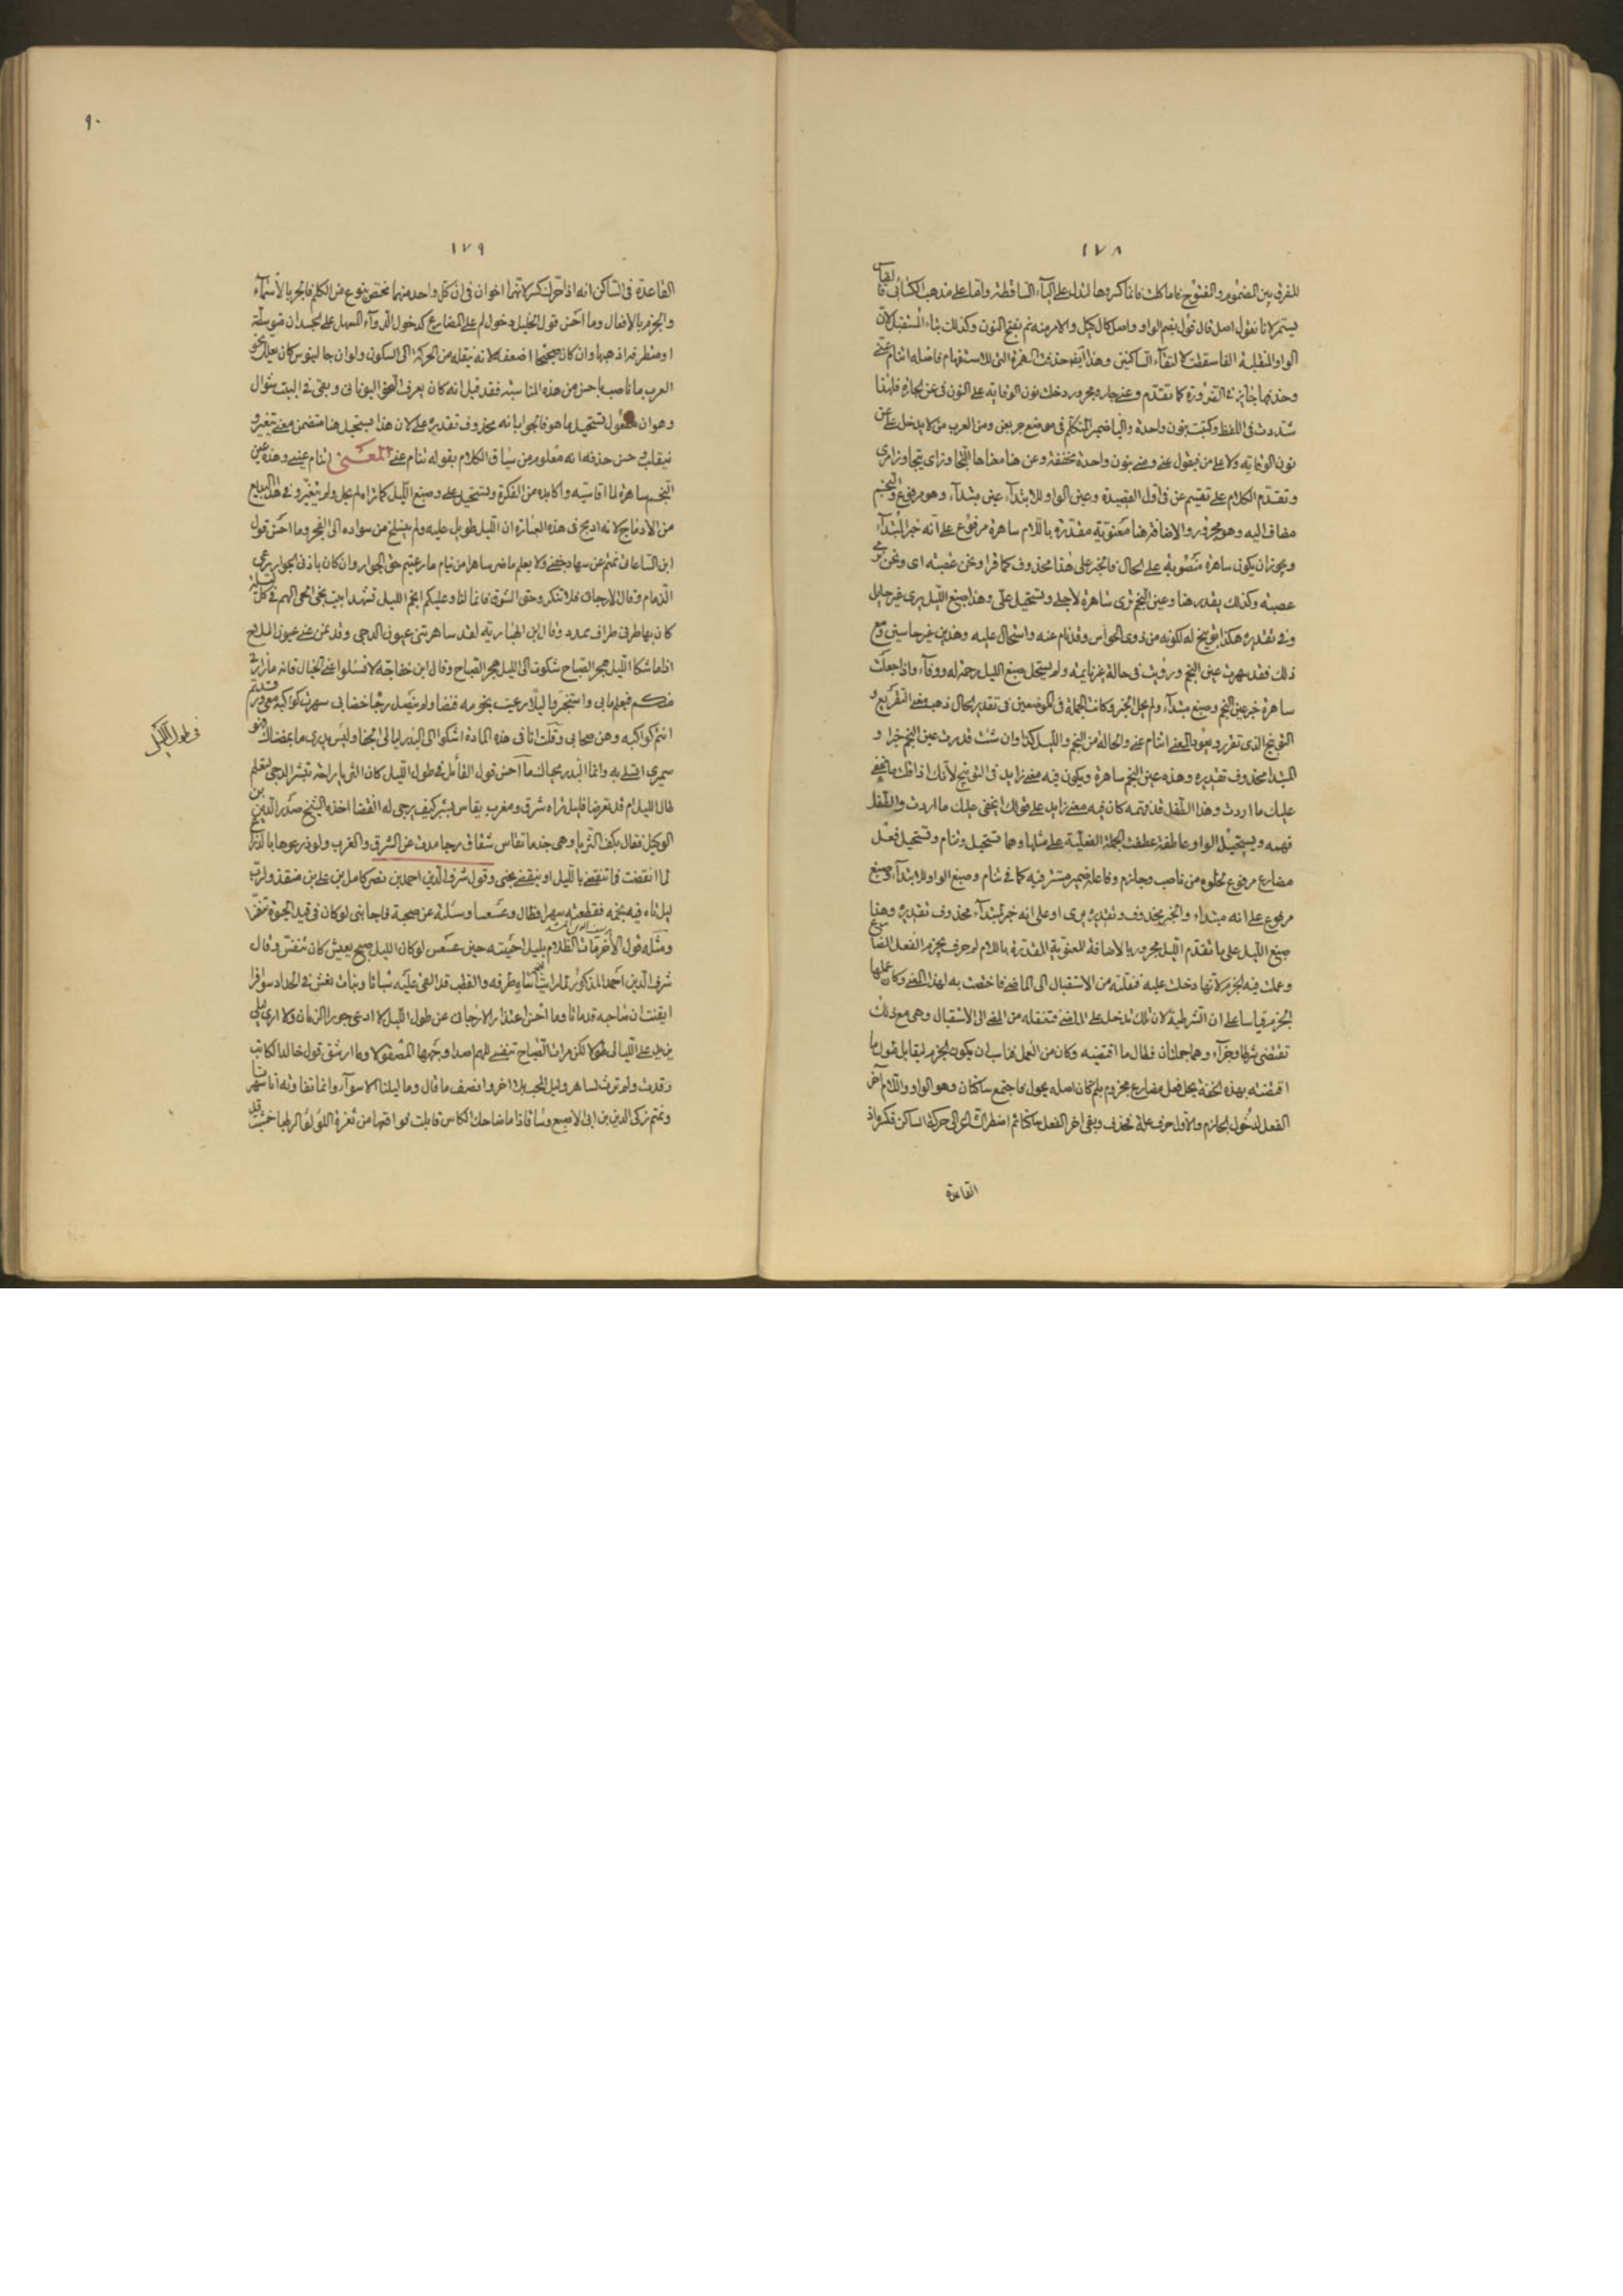 ١٧٨
للفرق بين المضموم والمفتوح فاما كلت فانما كسروها لتدل على الياء الساقطة واما على مذهب الكسائى فالقياس
يستمر لانا نقول اصل قال قول بضم الواو واصل كال كيل والامر منه نم بفتح النون وكذلك بناء المستقبل لان
الواو المنقلبة الفا سقطت لالتقاء الساكنين وهذا ايضا حذفت الهمزة التى للاستفهام فاصله اتنام عنى
وحذفها جائز فى الضرورة كما تقدم وعنى جار ومجرور دخلت نون الوقاية على النون فى عن الجارة فلهذا
شددت فى اللفظ وكتبت بنون واحدة والياء ضمير المتكلم فى موضع جر بعن ومن العرب من لا يدخل على عن
نون الوقاية ولا على من فيقول عنى ومنى بنون واحدة مخففة وعن هنا معناها
وتقدم الكلام على تقسيم عن فى اول القصيدة وعين الواو للابتداء عين مبتداء وهو مرفوع والنجم
مضاف اليه وهو مجرور والاضافة هنا معنوية مقدرة باللام ساهرة مرفوع على انه خبر المبتداء
ويجوز ان يكون ساهرة منصوبة على الحال والخبر على هذا محذوف كما قرا ونحن عصبة اى ونحن نرى
عصبة وكذلك يقدر هنا وعين النجم ترى ساهرة لاجلى وتستحيل على وهذا صبغ الليل يرى غير حايل
وفى تقديره هكذا توبيخ له لكونه من ذوى الحواس وقد نام عنه واستحال عليه وهذين غير حاسين ومع
ذلك فقد سهرت عين النجم ورؤيت فى حالة غير نايمة ولم يستحل صبغ الليل رحمة له ووفاء واذا جعلت
ساهرة خبر عين النجم وصبغ مبتداء ولم يحل الخبر وكانت الجملة فى الموضعين فى تقدير الحال ذهب معنى التقريع و
التوبيخ الذى تقرر
المبتدا محذوف تقديره وهذه عين النجم ساهرة ويكون فيه معنى زايد فى التوبيخ لانك اذا قلت ما يخفى
عليك ما اردت وهذا الطفل قد فهمه كان فيه معنى زايد على قولك ايخفى عليك ما اردت والطفل
فهمه وتستحيل الواو عاطفة عطفت الجملة الفعلية على مثلها وهما تستحيل وتنام وتستحيل فعل
مضارع مرفوع لخلوه من ناصب وجازم وفاعله ضمير مستتر فيه كما فى تنام وصبغ الواو للابتداء وصبغ
مرفوع على انه مبتداء والخبر محذوف وتقديره يرى او على انه خبر لمبتداء محذوف تقديره وهذا
صبغ الليل على ما تقدم الليل مجرور بالاضافة المعنوية المقدرة باللام لم حرف يجزم الفعل المضارع
وعملت فيه الجزم لانها دخلت عليه فنقلته من الاستقبال الى الماضى فاختصت به لهذا المعنى وكان عملها
الجزم قياسا على ان الشرطية لان تلك تدخل على الماضى فتنقله من المضى الى الاستقبال وهى مع ذلك
تقتضى شرطا وجزاء وهما جملتان فطال ما اقتضته وكان من العمل يناسب ان يكون الجزم ليقابل طول ما
اقتضته بهذه الخفة يحل فعل مضارع مجزوم بلم كان اصله يحول فاجتمع ساكنان وهو الواو واللام آخر
الفعل لدخول الجازم والاول حرف علة فحذف وبقى اخر الفعل ساكنا ثم اضطر الشاعر الى حركة الساكن فكسره اذ
القاعدة
٩٠
١٧٩
القاعدة فى الساكن انه اذا حرك كسر لانهما اخوان فى ان كل واحد منهما مختص بنوع من الكلم فالجر بالاسماء
والجزم بالافعال وما احسن قول الخليل دخول لم على المضارع كدخول الدواء المسهل على الجسد ان
العرب ما ناصب باحسن من هذه المناسبة فقد قيل انه كان يعرف النحو اليونانى وبقى فى البيت سؤال
وهو ان مفعول تستحيل ما هو فالجواب انه محذوف تقديره على لان هذا يستحيل هنا متضمن معنى يتغير و
ينقلب حسن حذفه انه معلوم من سياق الكلام بقوله تنام عنى المعنى اتنام عنى وهذه عين
النجم ساهرة لما اقاسيه واكابده من الفكرة وتستحيل على وصبغ الليل كما تراه لم يحل ولم يتغير وفى هذا البديع
من الادماج لانه ادمج فى هذه العبارة ان الليل طويل عليه ولم ينسلخ من سواده الى الفجر وما احسن قول
ابن الساعاتى نمتم عن سهاد جفنى ولا يعلم ما ضر ساهرا من نيام ما رعيتم حق الجوار وان كان باذنى الجوار يرعى
الذمام وقال الارجانى فلا تنكر وحق الشوق فانها لنا وعليكم انجم الليل تشهد ابيت
كان بها طرفى طراف ممدد وقال ابن الهبارية لقد ساهرتنى عيون الدجى وقد نمن عنى عيون الملاح
اذا ما شكا الليل هجر الصباح شكوت الى الليل هجر الصباح وقال ابن خفاجة لا فسلوا عنى الخيال فانه ما زارنى
منكم فيعلم ما بى واستخبروا ليلا رعيت نجومه فقضا ولم يتصل رجا خضابى سهرت كواكبه معى ورقدتم
انتم كواكبه وهن صحابى وقلت انا فى هذه المادة اشكوا الى البدر ليالى الجفا وليس يدرى ما
سميرى اقتلى به وانما البدر محياك ما احسن قول القائل فى طول الليل كان الثريا راحة تشبر الدجى لتعلم
طال الليل ام قد تعرضا فليل تراه شرق ومغرب يقاس بشبر كيف يرجى له انقضا اخذه الشيخ صدر الدين بن
الوكيل فقال بكف الثريا وهى جذما تقاس شقاق دجا مدت عن الشرق والغرب ولو ذرعوها بالذراع
لما انقضت فما تنقضى بالليل او ينقضى نحبى وقول شرف الدين احمد بن نصر كامل بن على بن منقذ ولرب
ليل تاه فيه نجمه فقطعته سهرا فطال وعسعسا وسئلته عن صبحه فاجابنى لو كان فى قيد الحيوة تنفسا
ومثله قول الاخر مات الظلام بليل احييته حين عسعس لو كان الليل صبح يعيش كان تنفس وقال
شرف الدين احمد المذكور لما رايت النجم ساه طرفه والقطب قد القى عليه سباتا وبنات نعش فى الحداد سوافرا
ايقنت ان صباحه قد ماتا وما احسن اعتذار الارجانى عن طول الليل لا ادعى جور الزمان ولا ارى ليلى
يزيد على الليالى طولا لكن مراة الصباح تنفسى للهم اصدا وجهها المصقولا وما ارشق قول خالد الكاتب
رقدت ولم ترث للساهر وليل المحب بلا اخر وانصف ما قال وما ليلنا الا سواء وانما تفاوته انا سهرنا
ونمتم زكى الدين بن ابى الاصبع وساق اذا ما ضاحك الكاس قابلت فواقعها من ثغره اللؤلؤ الرطبا خشيت
فى طول الليل